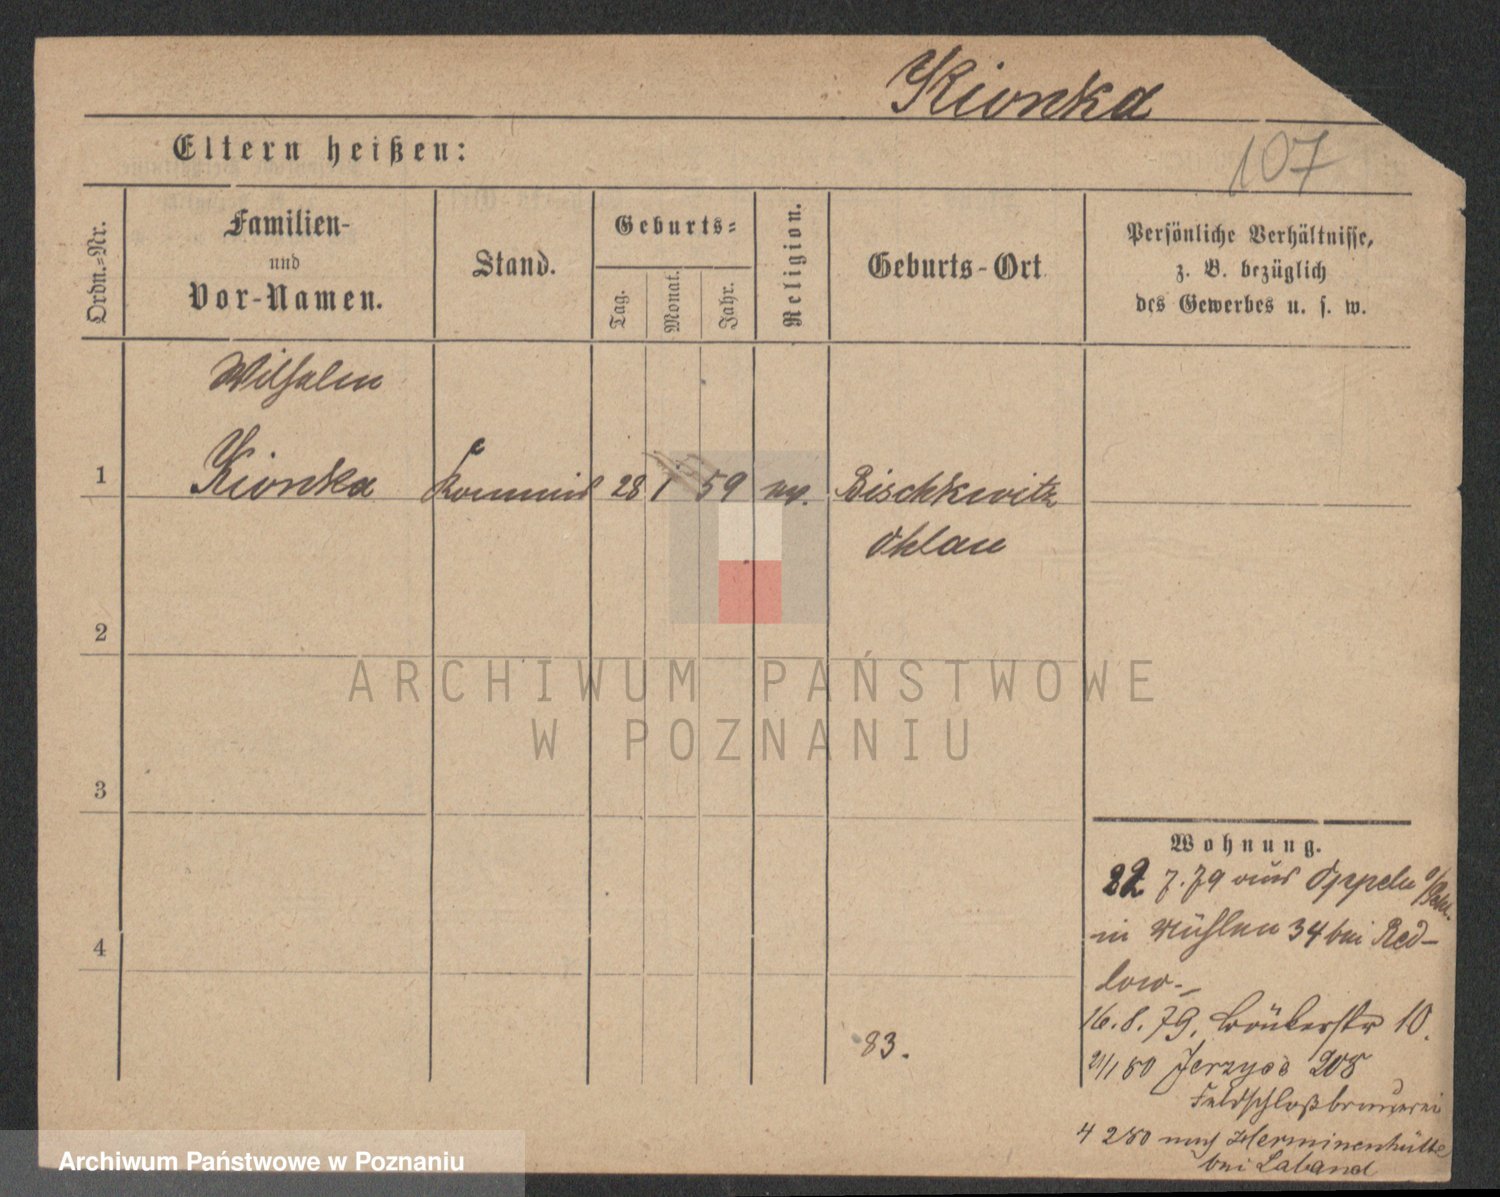 Kionka
107
Eltern heißen:
Ordn.-Nr.
Familien-
und
Vor-Namen.
Stand.
Geburts-
Tag.
Monat.
Jahr.
Religion.
Geburts-Ort
Persönliche Verhältnisse,
z. B. bezüglich
des Gewerbes u. s. w.
Wilhelm
1 Kionka Kommis 28 1 59 Bischkwitz
Ohlau
2
ARCHIWUM PAŃSTWOWE
W POZNANIU
3
4
Wohnung.
22 7.79 aus Oppeln
in Mühlen 34 bei Red-
low-
16.8.79. 10.
21/1 80 Jerzyce 208
Feldschloßbrauerei
4 2 80 nach Herminenhütte
bei Laband
83.
Archiwum Państwowe w Poznaniu